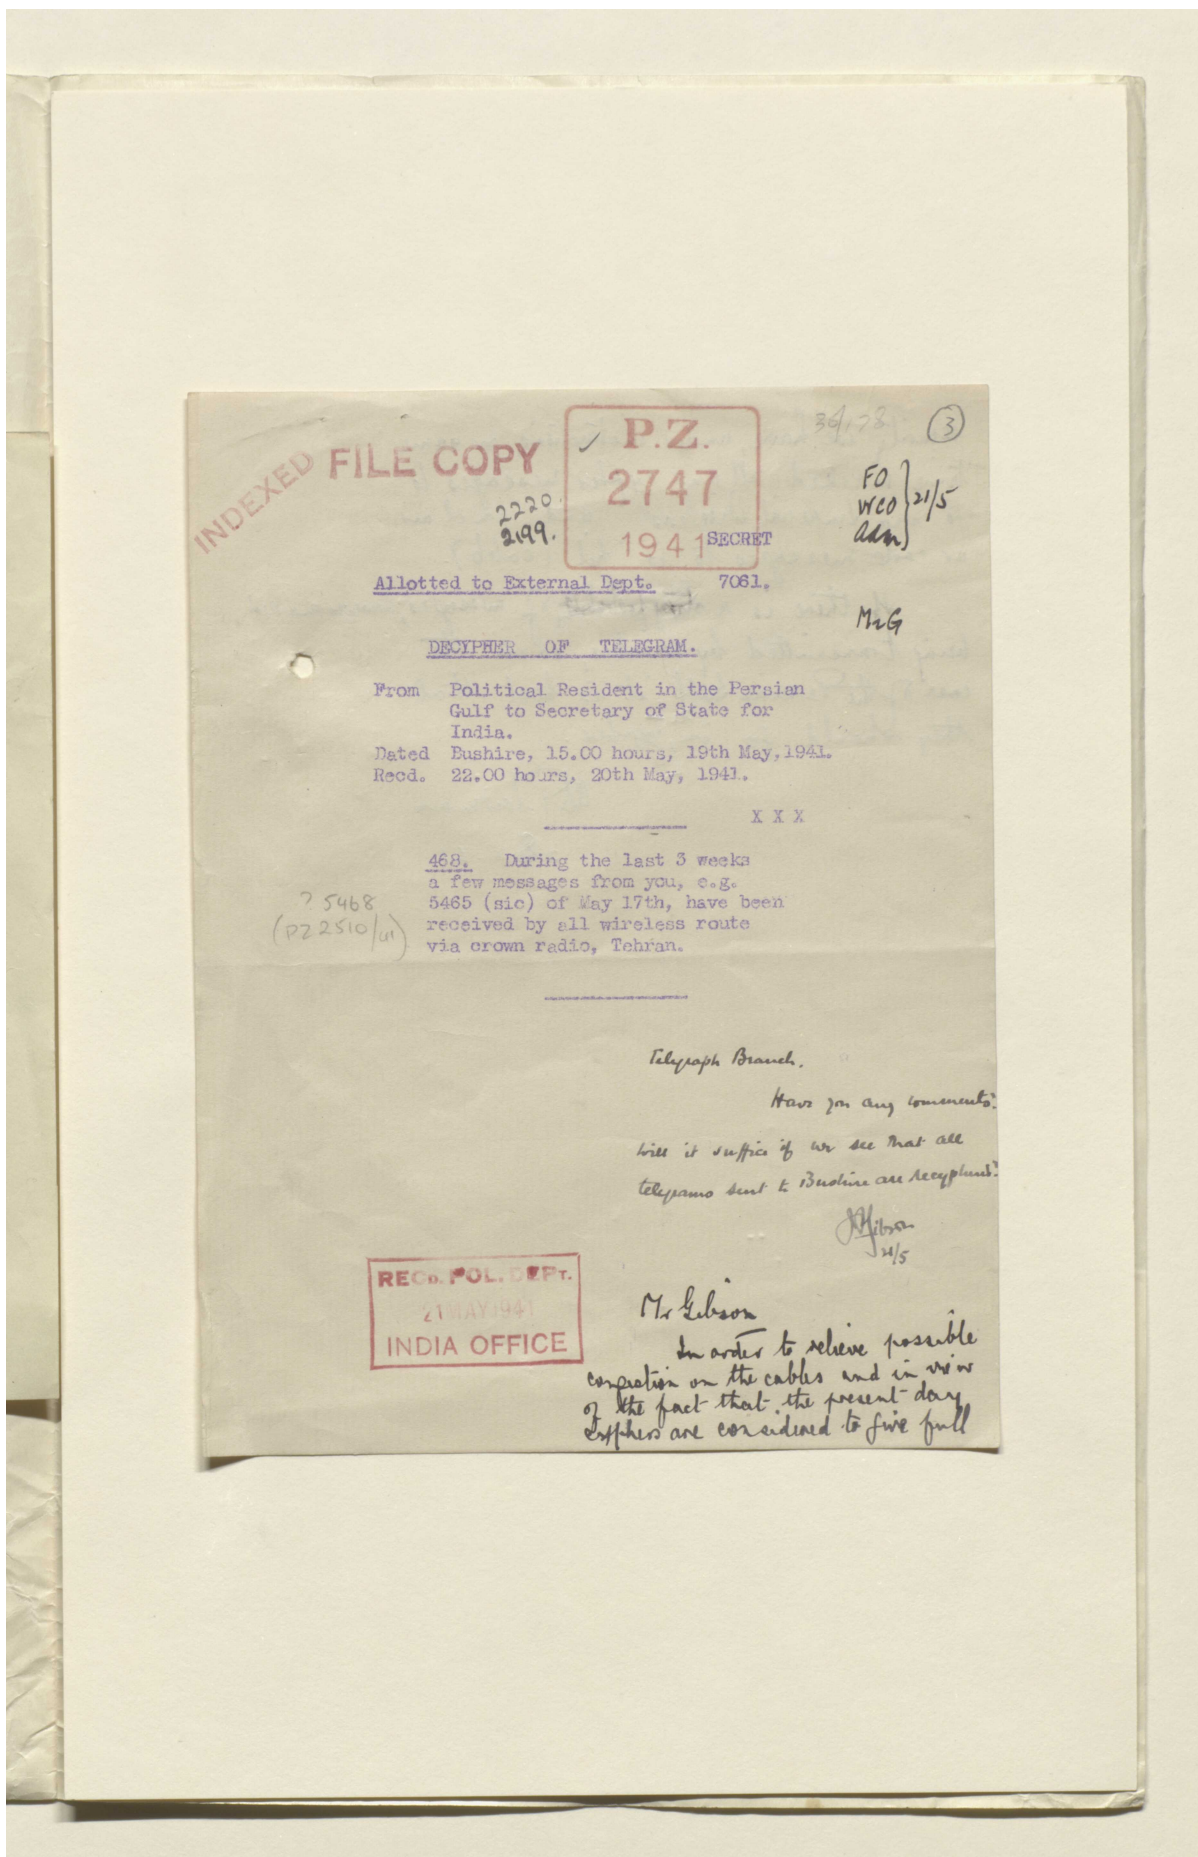 36/28
3
INDEXED
FILE COPY
P.Z.
2747
1941
2220.
2199.
FO
WCO
Adm
21/5
SECRET
Allotted to External Dept. 7061.
Mr G
DECYPHER OF TELEGRAM.
From Political Resident in the Persian
Gulf to Secretary of State for
India.
Dated Bushire, 15.00 hours, 19th May, 1941.
Recd. 22.00 hours, 20th May, 1941.
X X X
468. During the last 3 weeks
a few messages from you, e.g.
5465 (sic) of May 17th, have been
received by all wireless route
via crown radio, Tehran.
? 5468
(PZ 2510/41)
Telegraph Branch.
Have you any comments?
Will it suffice if we see that all
telegrams sent to Bushire are recyphered?
JPGibson
21/5
RECD. POL. DEPT.
21 MAY 1941
INDIA OFFICE
Mr Gibson
In order to relieve possible
congestion on the cables and in view
of the fact that the present day
cyphers are considered to give full